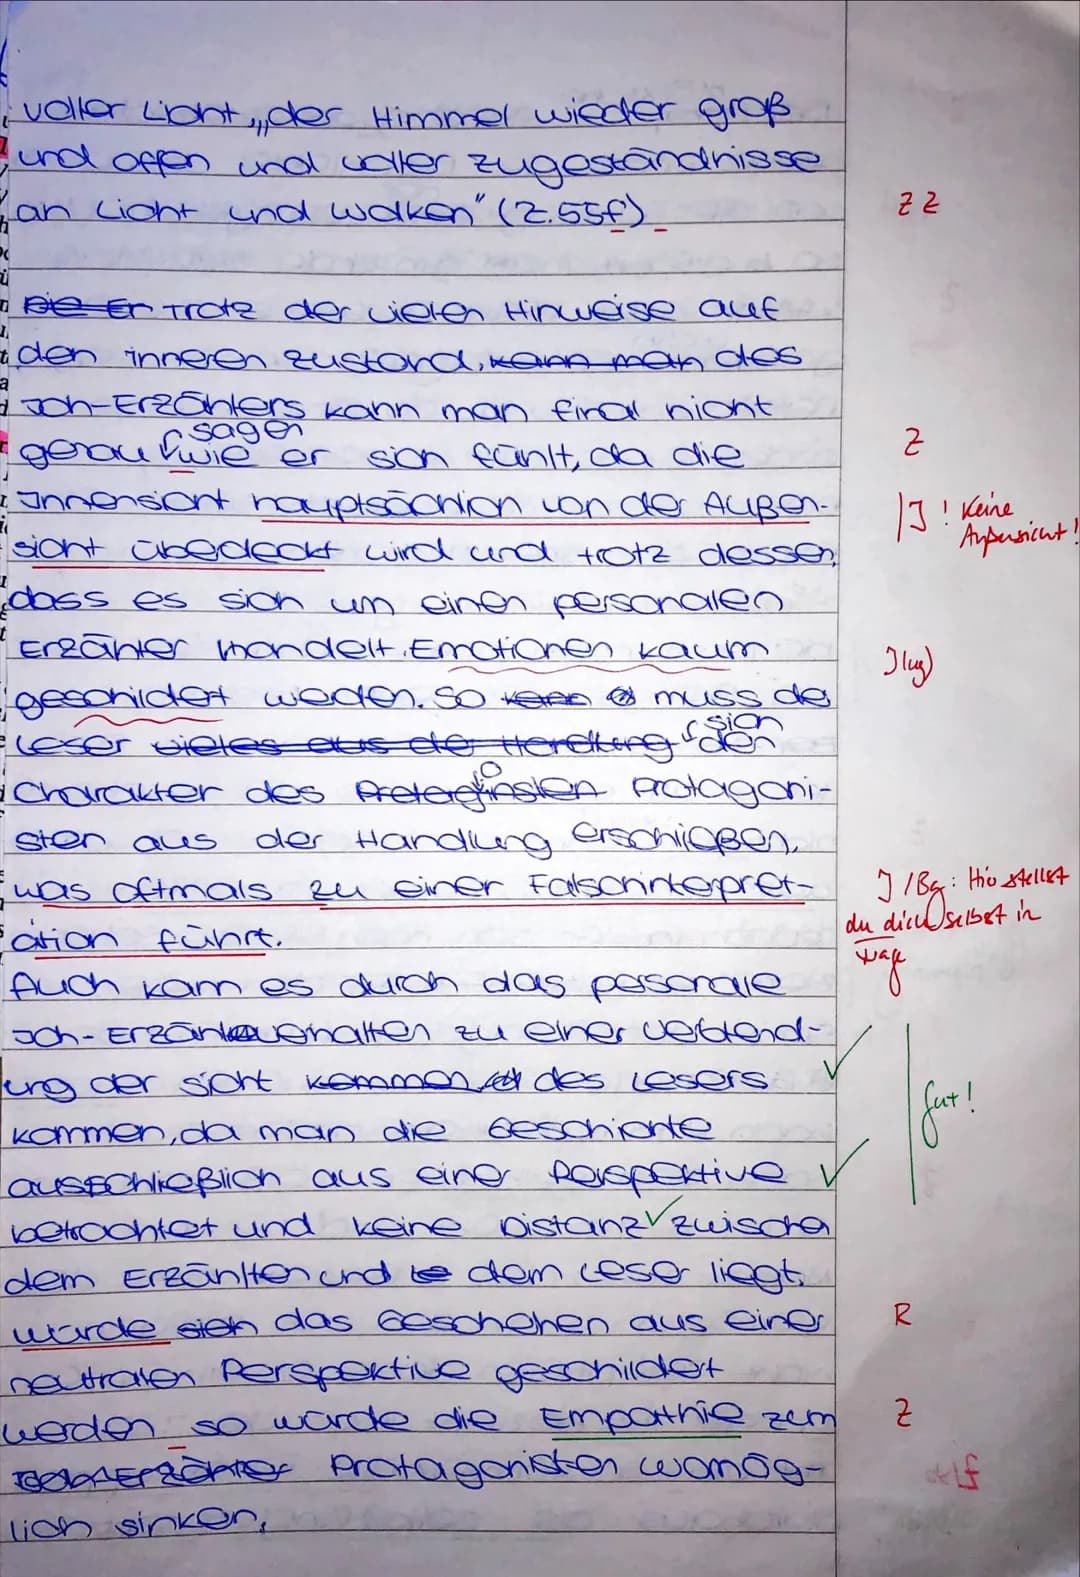 voller Licht, „der Himmel wieder groß
und offen und voller zugeständnisse
an Licht und Wolken" (Z.55f) ZZ
Die Er Trotz der vielen Hinweise auf
den inneren Zustand, kann man des
Ich-Erzählers kann man final nicht
sagen
genau wie er sich fühlt, da die Z
Innensicht hauptsächlich von der Außen- |J! Keine
sicht überdeckt wird und trotz dessen, Außensicht!
dass es sich um einen personalen
Erzähler handelt. Emotionen kaum J(ug)
geschildert werden. So kann muss der
sich
Leser vieles aus der Handlung den
Charakter des Protagonisten Protagoni-
sten aus der Handlung erschließen,
was oftmals zu einer Falschinterpret- J/Bg: Hier stellst
ation führt. du dich selbst in
Frage
Auch kann es durch das personale
Ich-Erzählverhalten zu einer Verblend-
ung der Sicht kommen des Lesers
kommen, da man die Geschichte gut!
ausschließlich aus einer Perspektive
betrachtet und keine Distanz zwischen
dem Erzählten und le dem Leser liegt.
würde sich das Geschehen aus einer R
neutralen Perspektive geschildert
werden so würde die Empathie zum Z
Ich-Erzähler Protagonisten womög-
lich sinken.